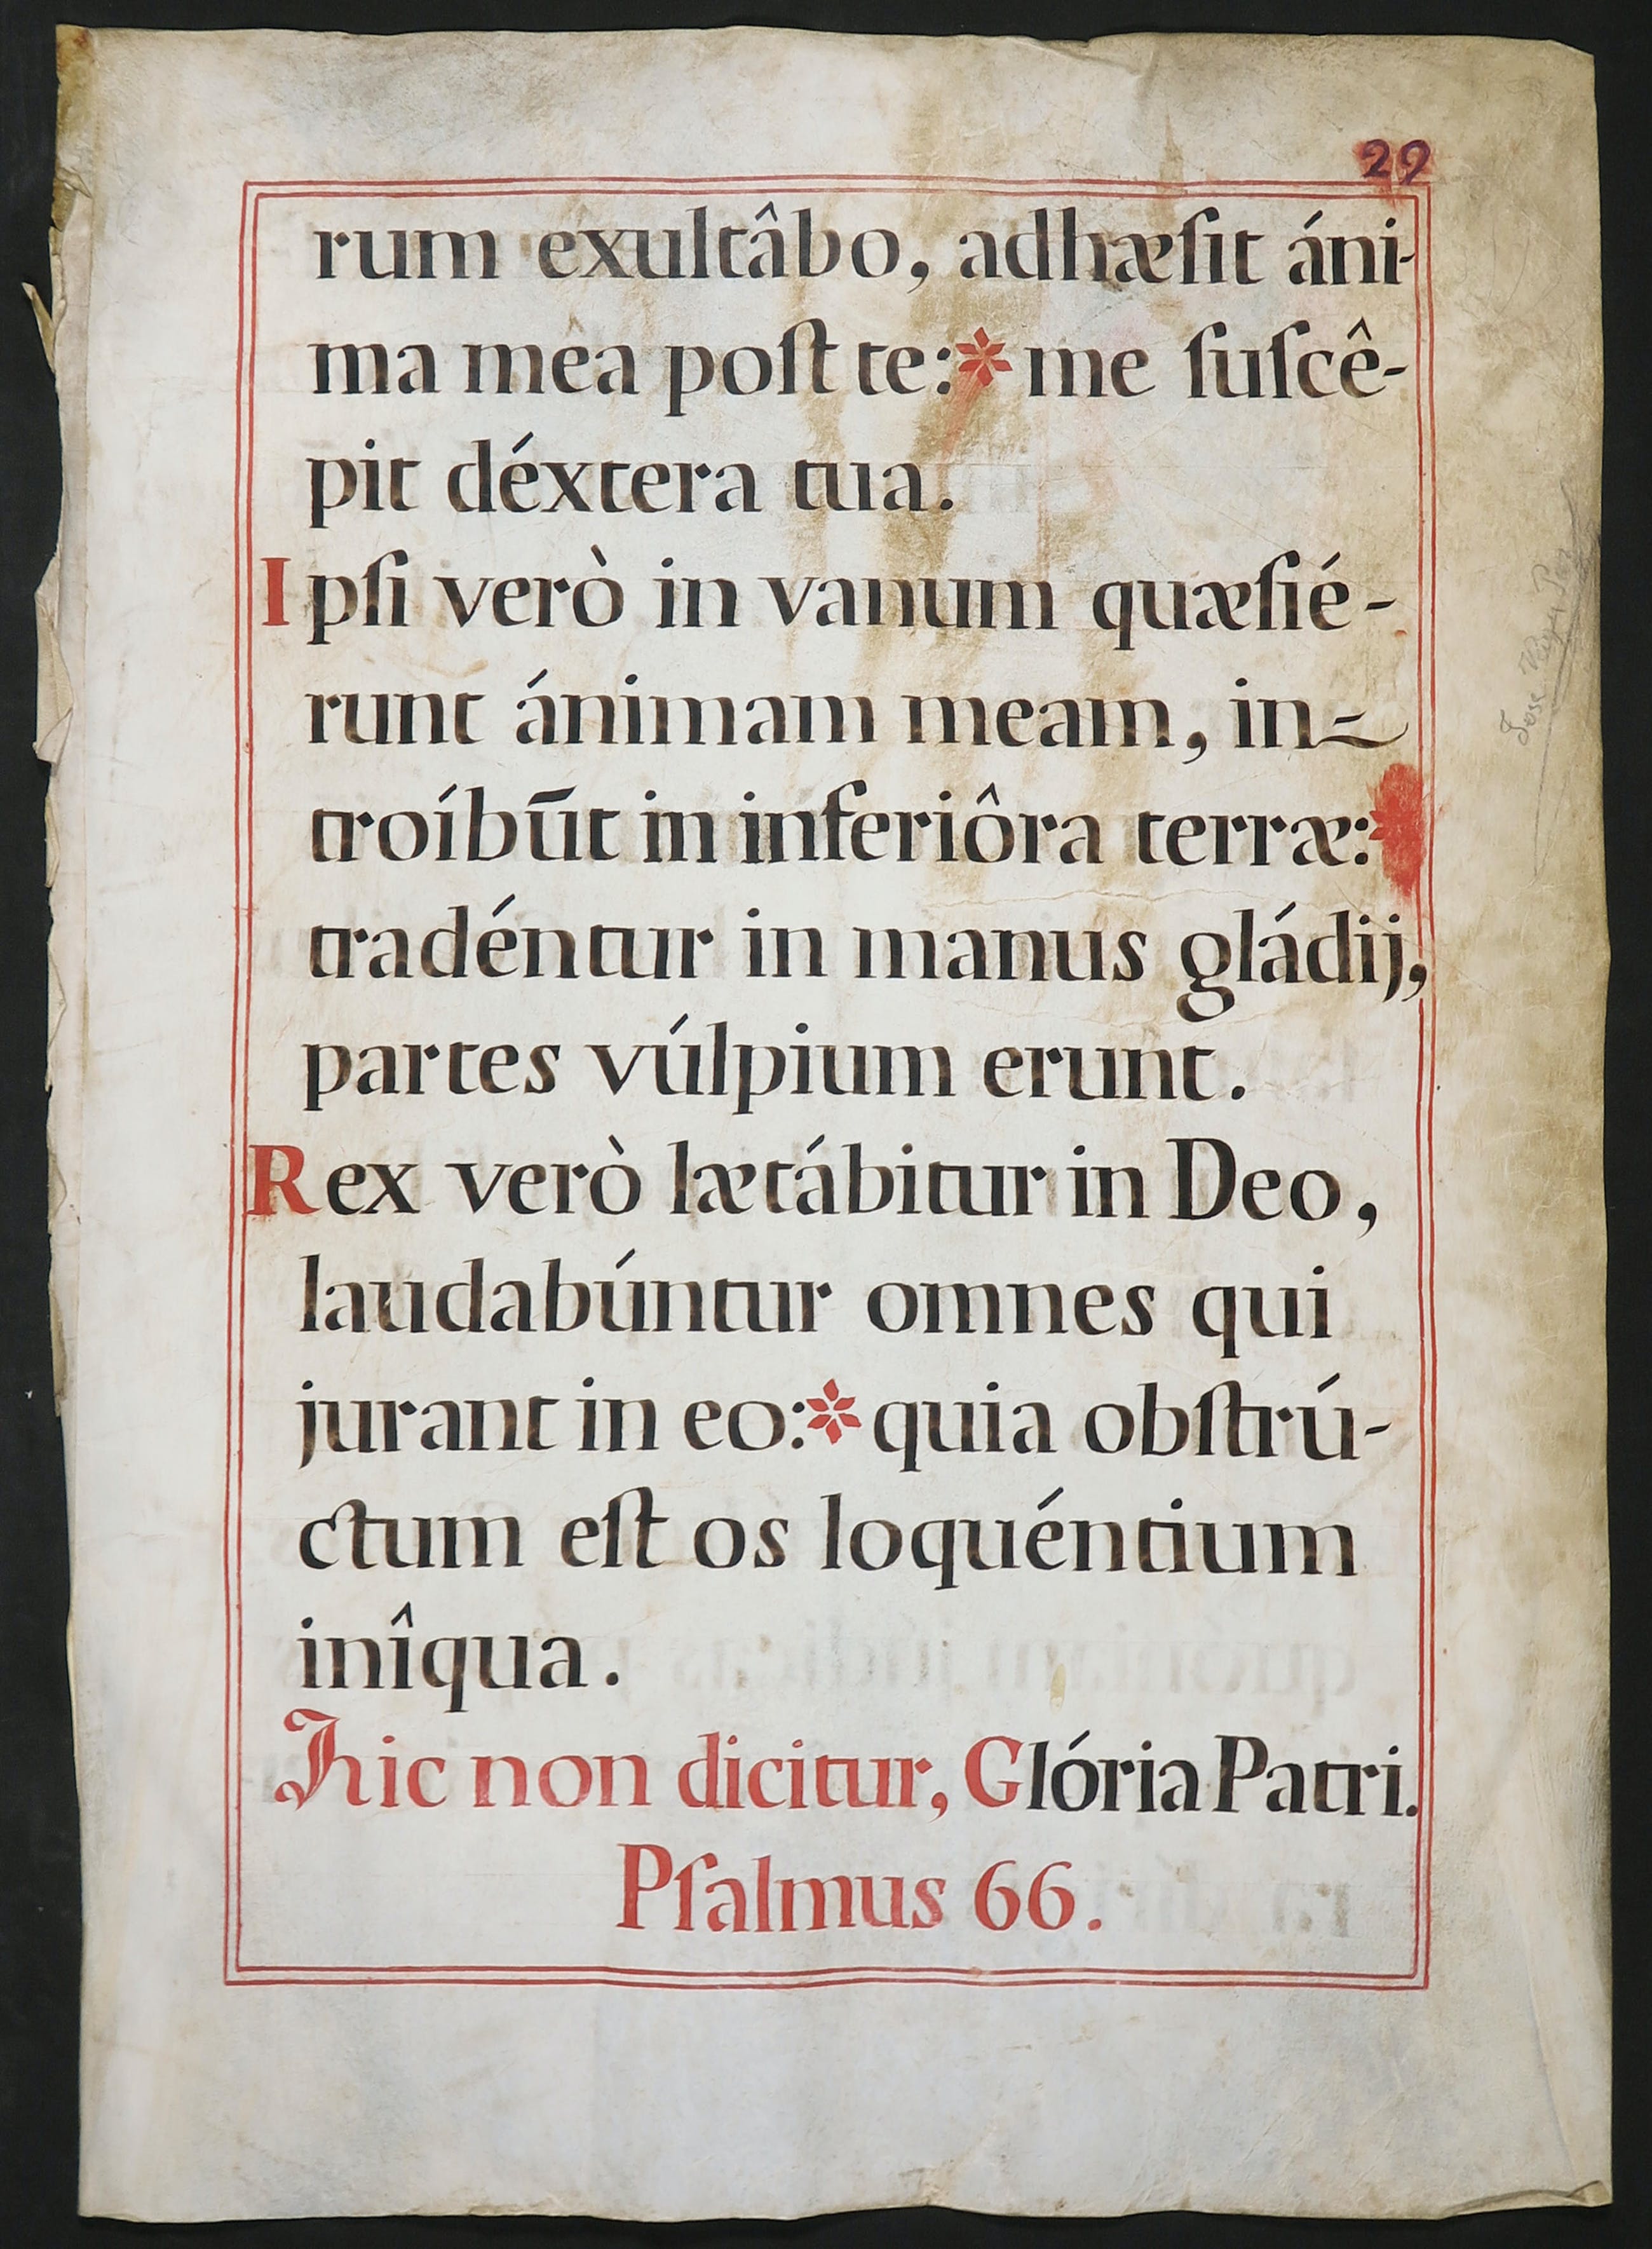 29
rum exultâbo, adhæſit áni-
ma mea poſt te:* me ſuſcê-
pit déxtera tua.
Ipſi verò in vanum quæſié-
runt ánimam meam, in-
troíbūt in inferiôra terræ:
tradéntur in manus gládij,
partes vúlpium erunt.
Rex verò lætábitur in Deo,
laudabúntur omnes qui
jurant in eo:* quia obſtrú-
ctum eſt os loquéntium
inîqua.
Hic non dicitur, Glória Patri.
Pſalmus 66.